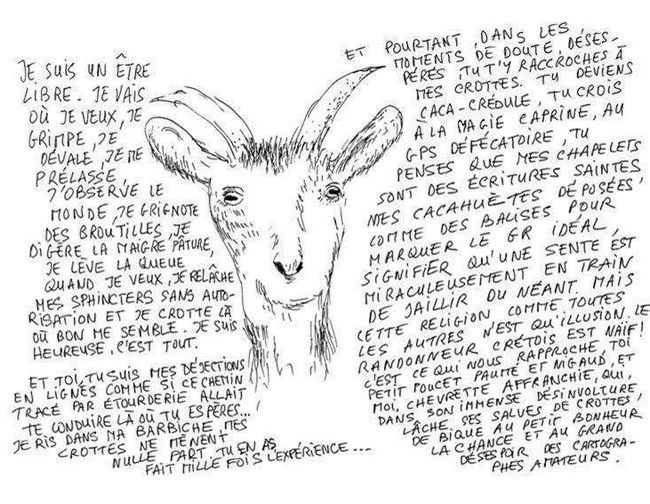 JE SUIS UN ÊTRE
LIBRE. JE VAIS
OÙ JE VEUX, JE
GRIMPE, JE
DÉVALE, JE ME
PRÉLASSE,
J'OBSERVE LE
MONDE, JE GRIGNOTE
DES BROUTILLES, JE
DIGÈRE LA MAIGRE PÂTURE,
JE LÈVE LA QUEUE
QUAND JE VEUX, JE RELÂCHE
MES SPHINCTERS SANS AUTO-
RISATION ET JE CROTTE LÀ
OÙ BON ME SEMBLE. JE SUIS
HEUREUSE, C'EST TOUT.
ET TOI, TU SUIS MES DÉJECTIONS
EN LIGNES COMME SI CE CHEMIN
TRACÉ PAR ÉTOURDERIE ALLAIT
TE CONDUIRE LÀ OÙ TU ESPÈRES...
JE RIS DANS MA BARBICHE, MES
CROTTES NE MÈNENT
NULLE PART. TU EN AS
FAIT MILLE FOIS L'EXPÉRIENCE...
ET POURTANT, DANS LES
MOMENTS DE DOUTE, DÉSES-
PÉRÉS, TU T'Y RACCROCHES À
MES CROTTES. TU DEVIENS
CACA-CRÉDULE, TU CROIS
À LA MAGIE CAPRINE, AU
GPS DÉFÉCATOIRE, TU
PENSES QUE MES CHAPELETS
SONT DES ÉCRITURES SAINTES
MES CACAHUÈTES DÉPOSÉES,
COMME DES BALISES POUR
MARQUER LE GR IDÉAL,
SIGNIFIER QU'UNE SENTE EST
MIRACULEUSEMENT EN TRAIN
DE JAILLIR DU NÉANT. MAIS
CETTE RELIGION COMME TOUTES
LES AUTRES N'EST QU'ILLUSION. LE
RANDONNEUR CRÉTOIS EST NAÏF!
C'EST CE QUI NOUS RAPPROCHE, TOI
PETIT POUCET PAUMÉ ET NIGAUD, ET
MOI, CHEVRETTE AFFRANCHIE, QUI,
DANS SON IMMENSE DÉSINVOLTURE,
LÂCHE SES SALVES DE CROTTES,
DE BIQUE AU PETIT BONHEUR
LA CHANCE ET AU GRAND
DÉSESPOIR DES CARTOGRA-
PHES AMATEURS.